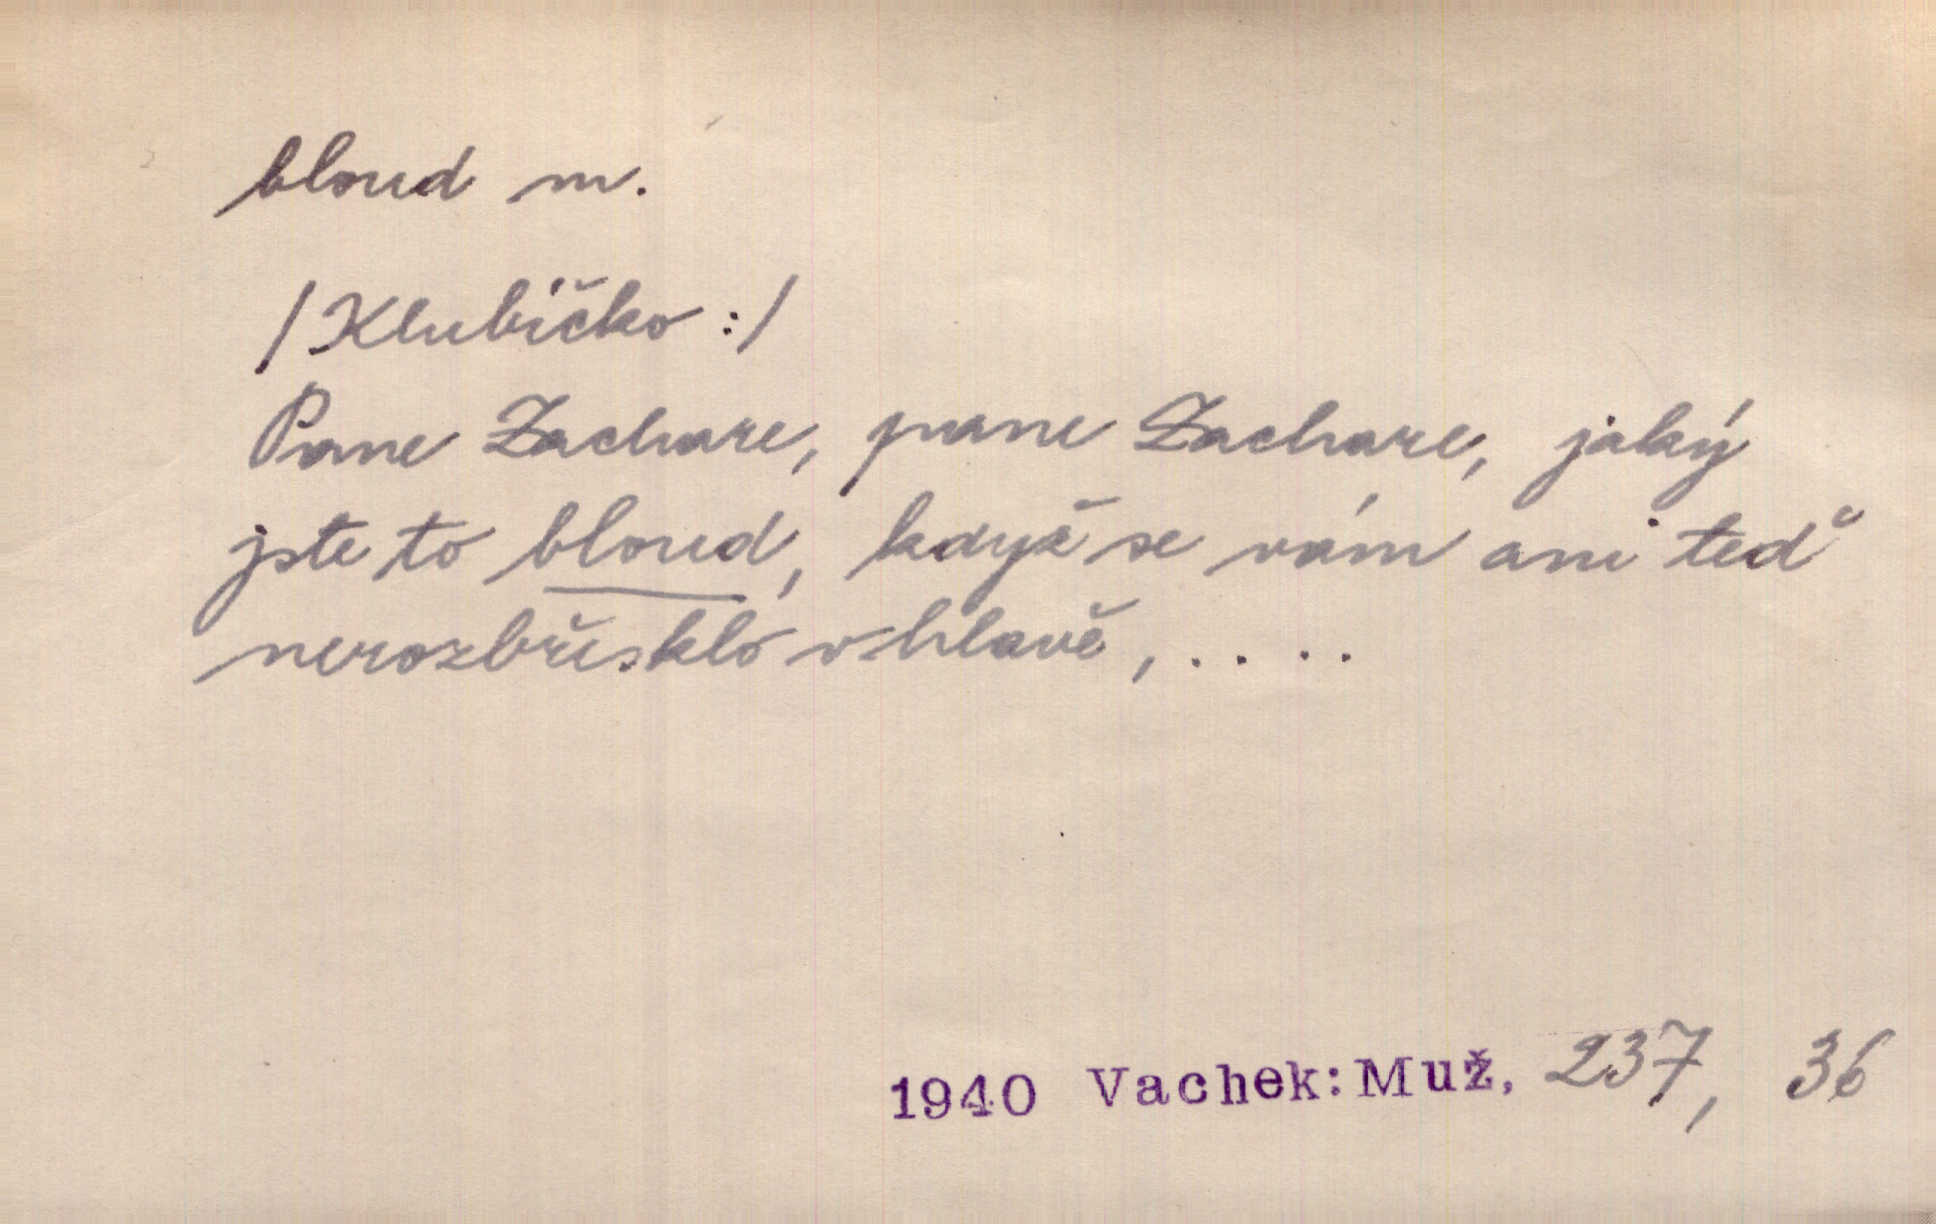 bloud m.
/Klubíčko:/
Pane Zachare, pane Zachare, jaký
jste to bloud, když se vám ani teď
nerozbřesklo v hlavě, . . . .
1940 Vachek: Muž, 237, 36